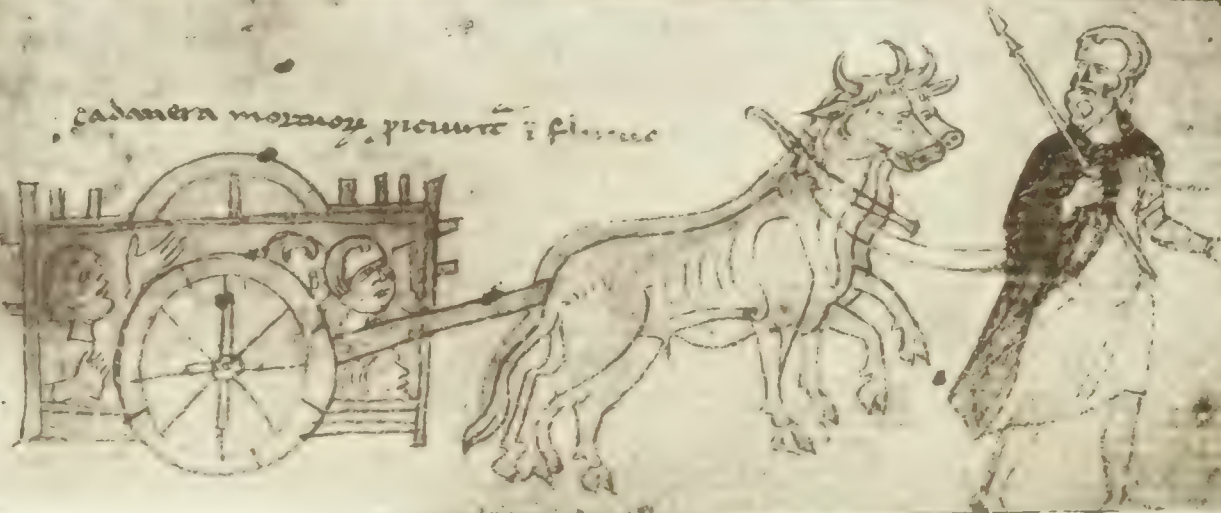 cadauera mortuoꝝ piciunt̄ ī flumc